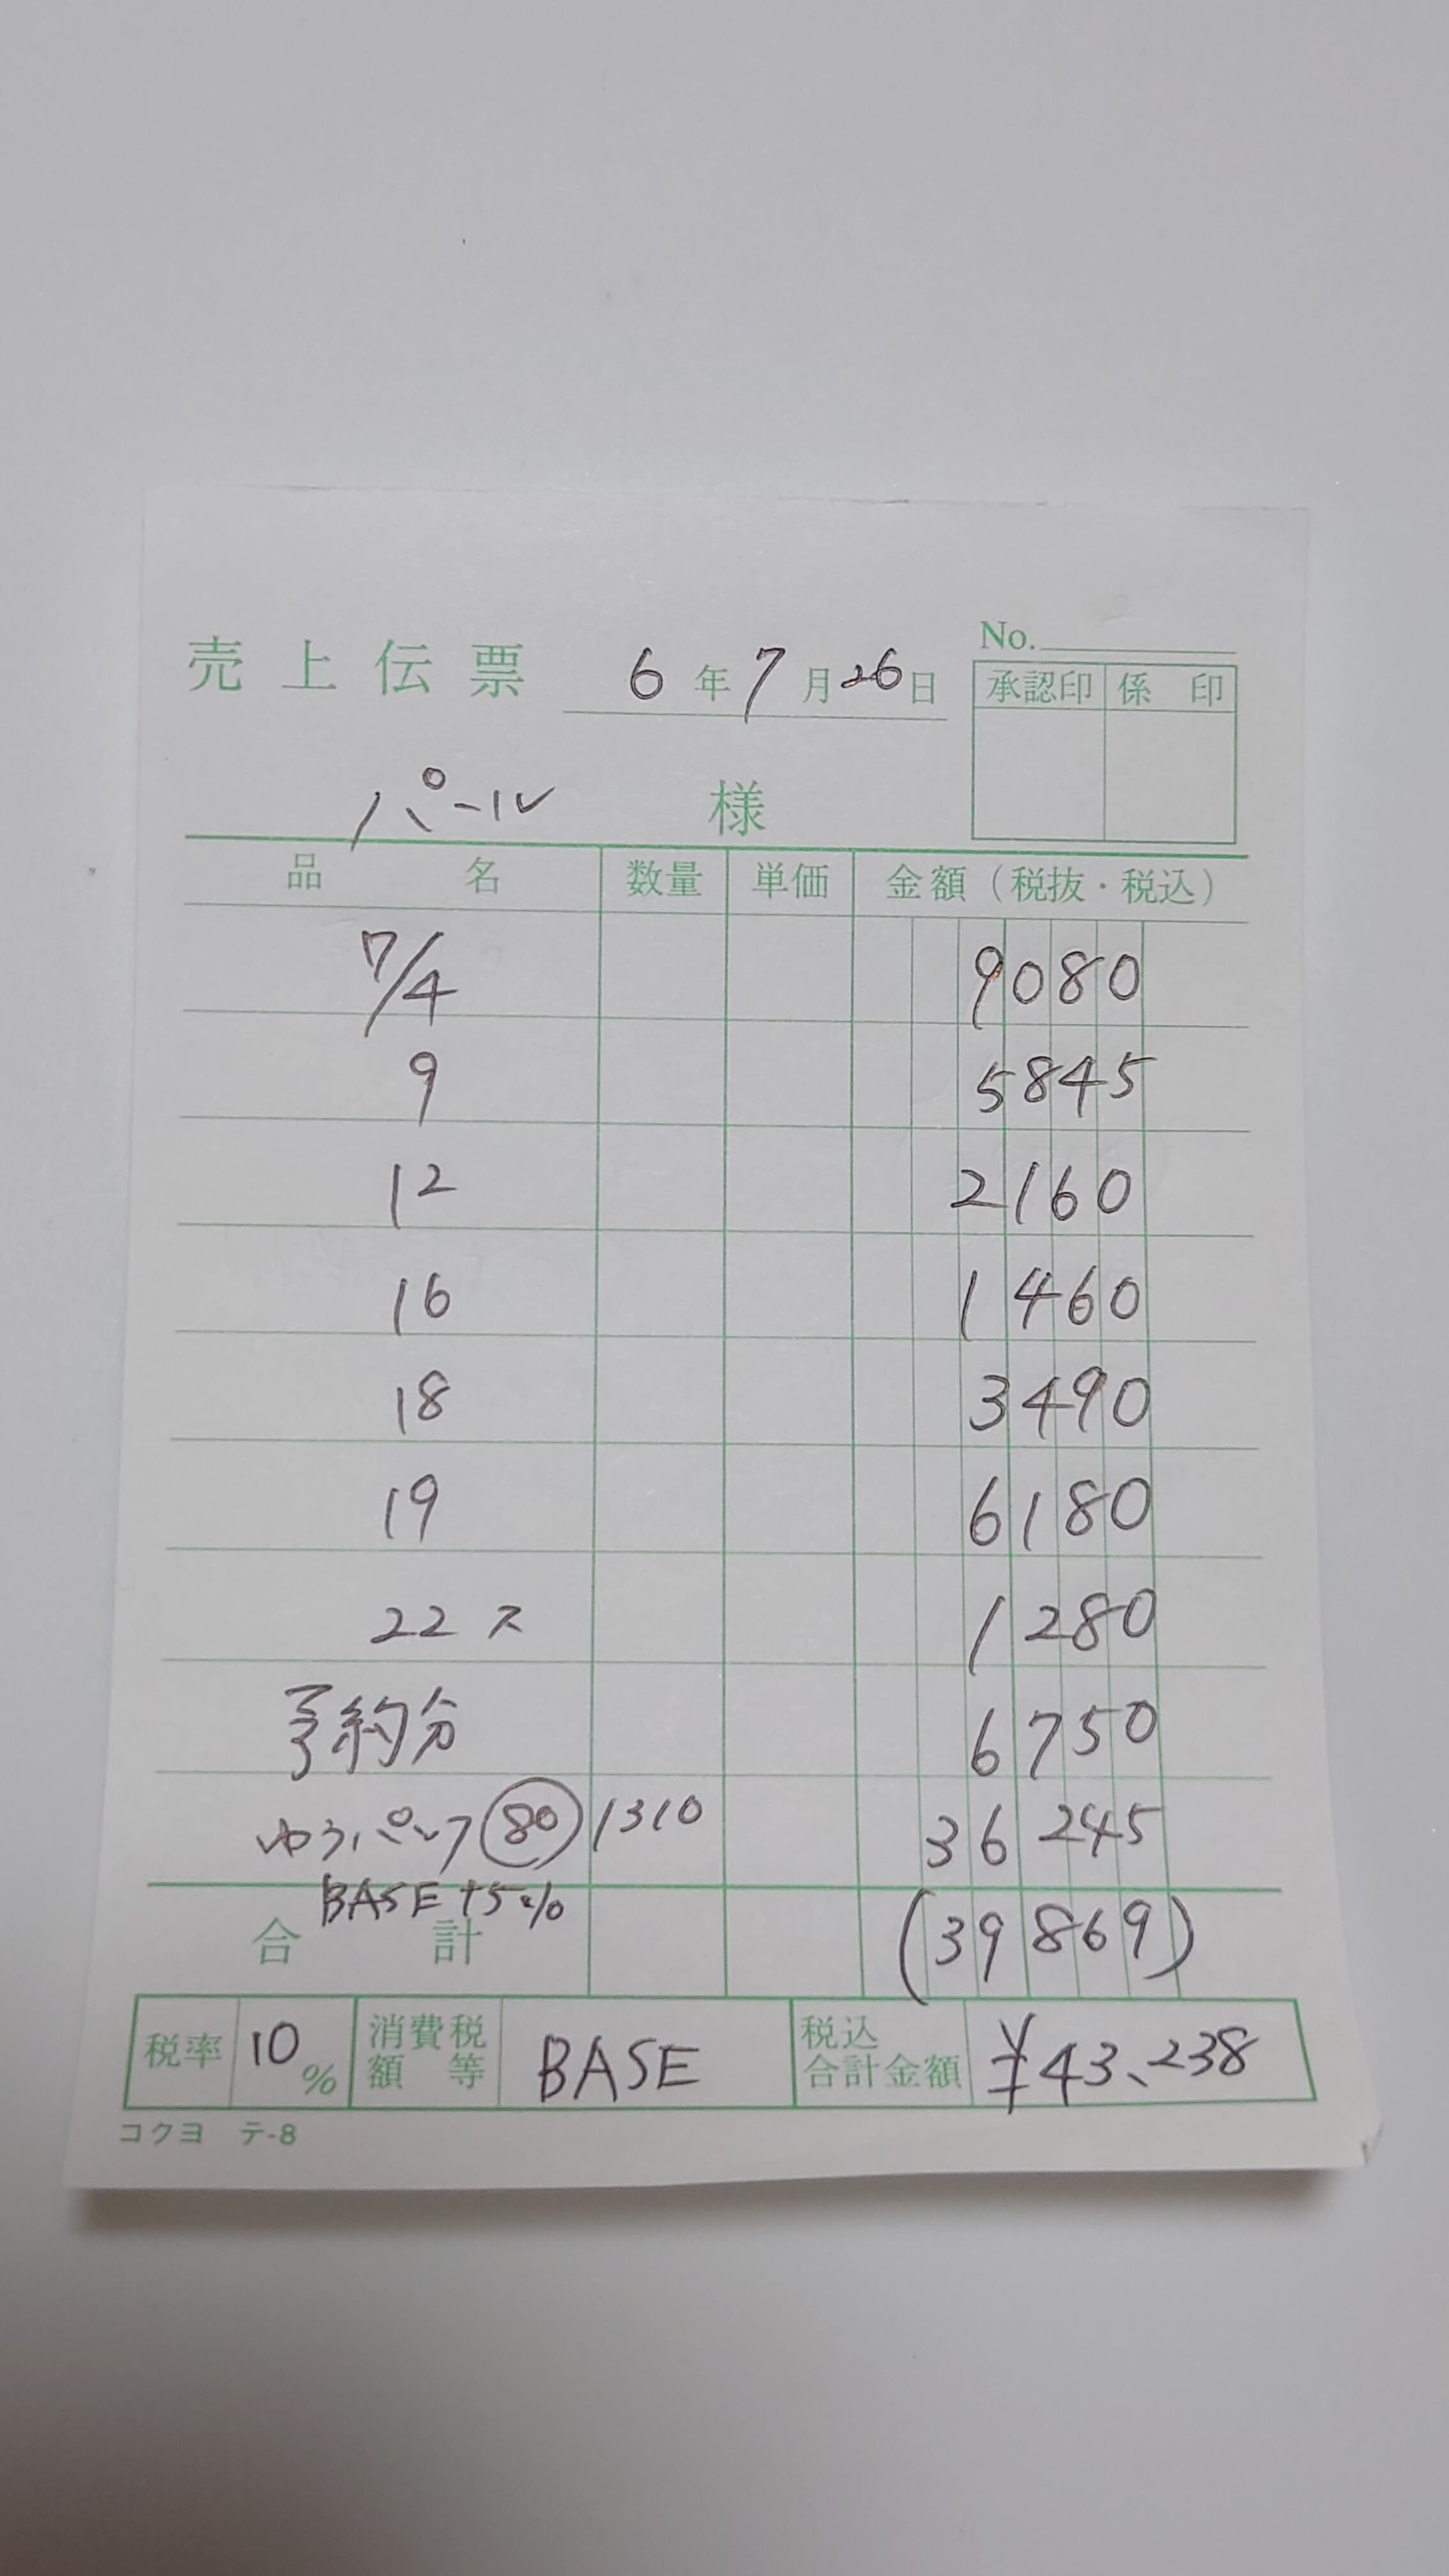 No.
売上伝票 6年7月26日
承認印 係印
パール 様
品名 数量 単価 金額（税抜・税込）
7/4 9080
9 5845
12 2160
16 1460
18 3490
19 6180
22 ス 1280
予約分 6750
ゆうパック 80 1310 36245
BASE +5%
合計 (39869)
税率 10% 消費税額等 BASE 税込合計金額 ¥43、238
コクヨ テ-8